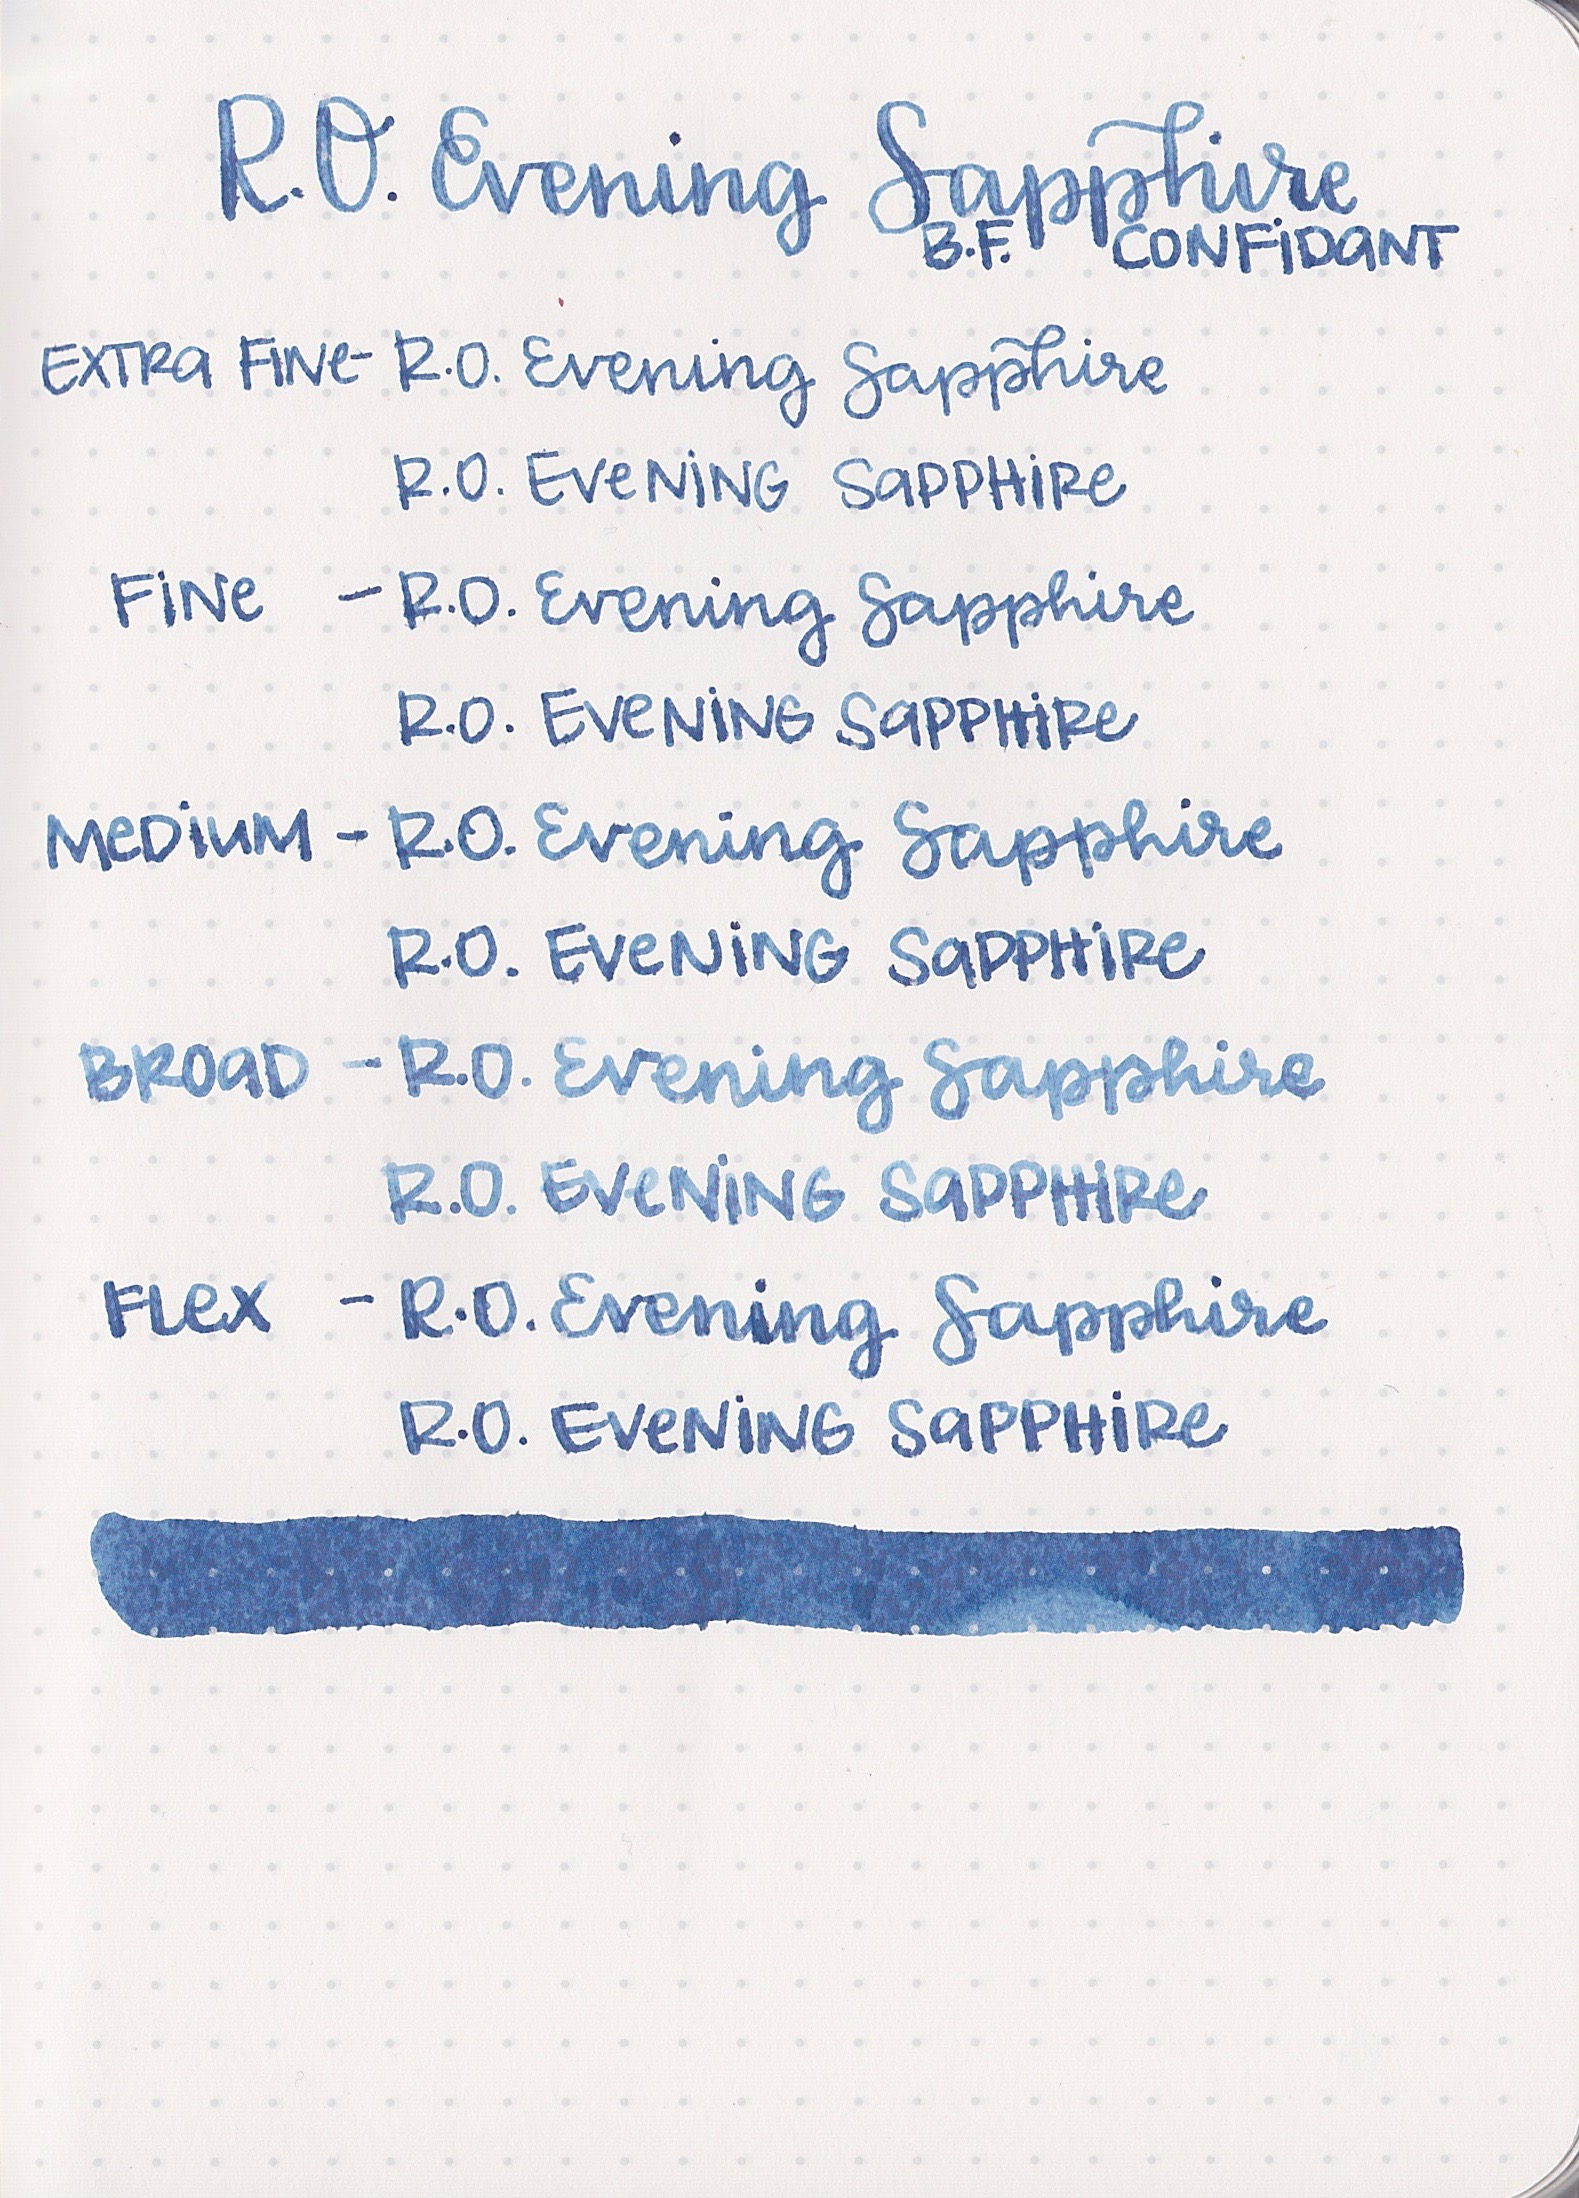 R.O. Evening Sapphire
B.F. CONFiDANT
EXTRa FiNe- R.O. Evening Sapphire
R.O. EVeNiNG SaPPHiRe
FiNe - R.O. Evening Sapphire
R.O. EVeNiNG SaPPHiRe
MeDiUM - R.O. Evening Sapphire
R.O. EVeNiNG SaPPHiRe
BROaD - R.O. Evening Sapphire
R.O. EVeNiNG SaPPHiRe
FLeX - R.O. Evening Sapphire
R.O. EVeNiNG SaPPHiRe